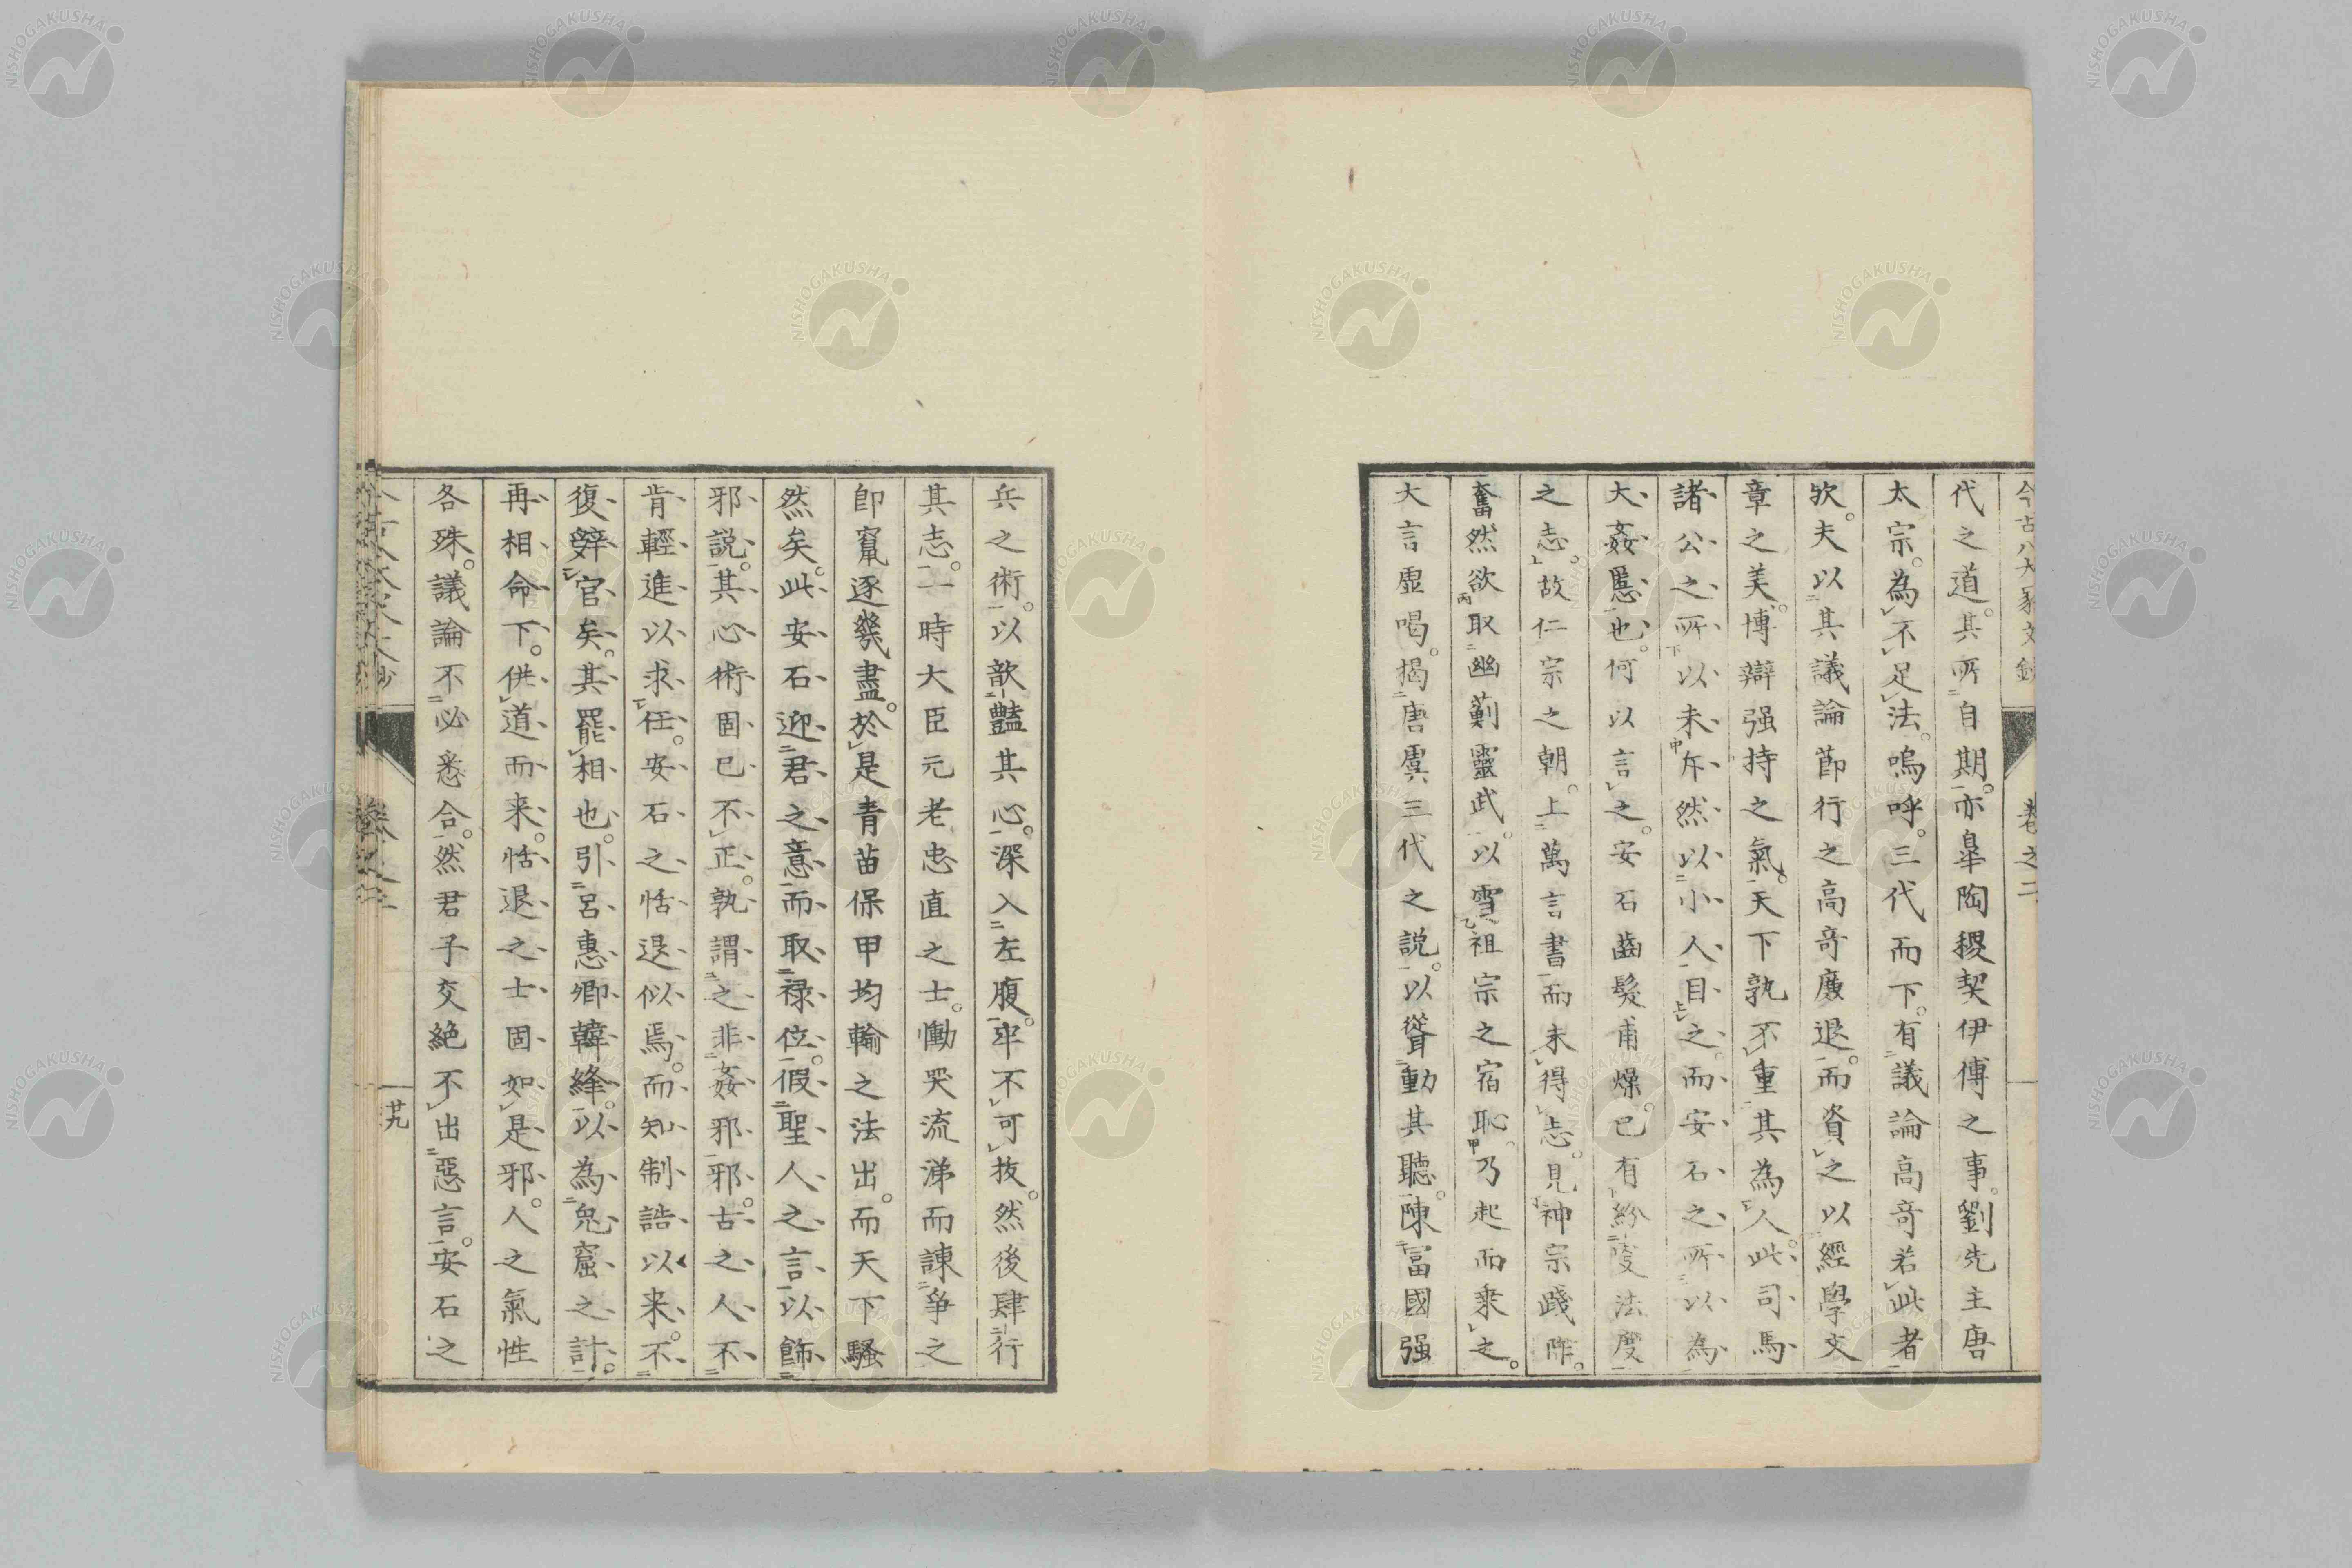 今古八大家文鈔 卷之二
代之道。其所自期。亦皐陶稷契伊傅之事。劉先主唐
太宗。為不足法。嗚呼。三代而下。有議論高奇若此者
欤。夫以其議論節行之高奇廉退。而資之以經學文
章之美。博辯强持之氣。天下孰不重其為人。此司馬
諸公之所以未斥然以小人目之。而安石之所以為
大姦慝也。何以言之。安石齒髮甫燥。已有紛更法度
之志。故仁宗之朝。上萬言書而未得志。見神宗踐阼。
奮然欲取幽薊靈武。以雪祖宗之宿恥。乃起而乘之。
大言虛喝。揭唐虞三代之說。以聳動其聽。陳富國强
兵之術。以歆豔其心。深入左腹。牢不可拔。然後肆行
其志。一時大臣元老忠直之士。慟哭流涕而諫爭之
卽竄逐幾盡。於是青苗保甲均輸之法出。而天下騷
然矣。此安石迎君之意而取祿位。假聖人之言以飾
邪說。其心術固已不正。孰謂之非姦邪邪。古之人不
肯輕進以求任。安石之恬退似焉。而知制誥以来。不
復辭官矣。其罷相也。引呂惠卿韓絳。以為兔窟之計。
再相命下。供道而来。恬退之士固如是邪。人之氣性
各殊。議論不必悉合。然君子交絕不出惡言。安石之
廿九